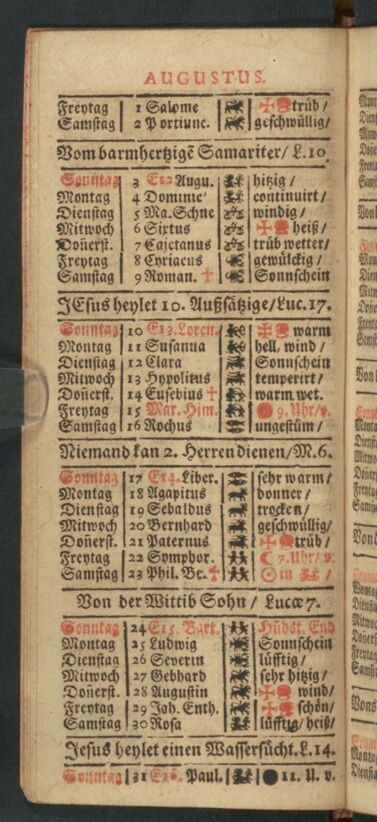 AUGUSTUS.
Freytag 1 Salome trüb/
Samstag 2 Portiunc. geschwüllig/
Vom barmhertzigē Samariter/ L.10
Sonntag 3 E12 Augu. hitzig/
Montag 4 Dominic' continuirt/
Dienstag 5 Ma. Schne windig/
Mitwoch 6 Sixtus heiß/
Doñerst. 7 Cajetanus trüb wetter/
Freytag 8 Cyriacus gewülckig/
Samstag 9 Roman. † Sonnschein
JEsus heylet 10. Außsätzige/Luc.17.
Sonntag 10 E13. Loren. warm
Montag 11 Susanna hell, wind/
Dienstag 12 Clara Sonnschein
Mitwoch 13 Hypolitus temperirt/
Doñerst. 14 Eusebius † warm wet.
Freytag 15 Mar. Him. 9. Uhr/v.
Samstag 16 Rochus ungestüm/
Niemand kan 2. Herren dienen/M.6.
Sonntag 17 E14. Liber. sehr warm/
Montag 18 Agapitus donner/
Dienstag 19 Sebaldus trocken/
Mitwoch 20 Bernhard geschwüllig/
Doñerst. 21 Paternus trüb/
Freytag 22 Symphor. ☾ 7. Uhr/v.
Samstag 23 Phil. Be. † ☉ in ♍ /
Von der Wittib Sohn/ Lucæ 7.
Sonntag 24 E15. Bart. Hüdst. End
Montag 25 Ludwig Sonnschein
Dienstag 26 Severin lüfftig/
Mitwoch 27 Gebhard sehr hitzig/
Doñerst. 28 Augustin wind/
Freytag 29 Joh. Enth. schön/
Samstag 30 Rosa lüfftig/ heiß/
Jesus heylet einen Wassersücht. L.14.
Sonntag 31 E16. Paul. 11. U. v.